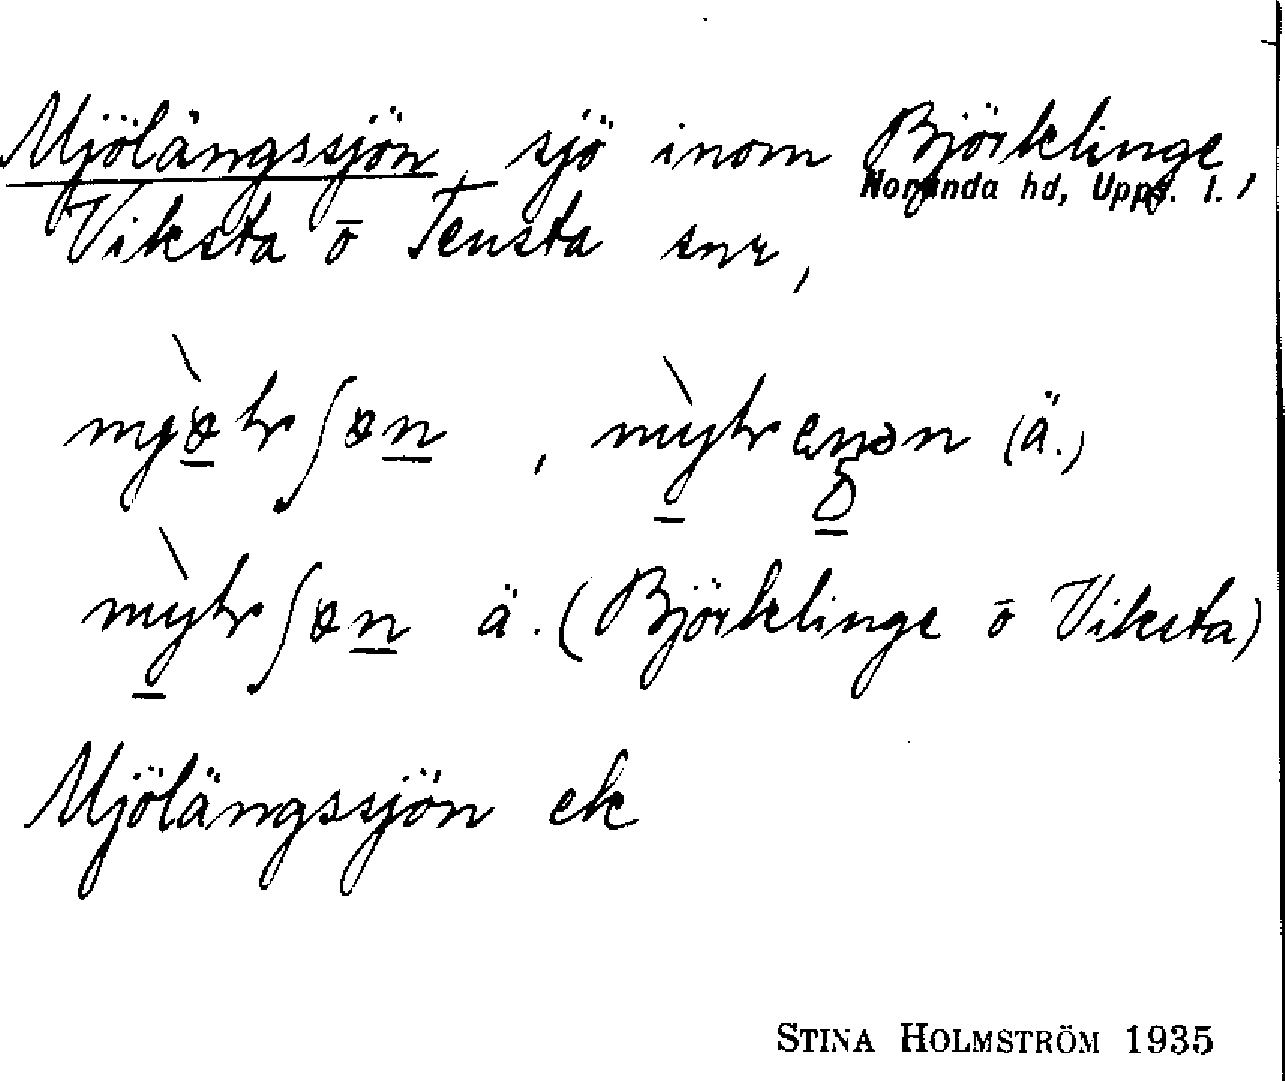 Mjölängssjön, sjö inom Björklinge,
Norunda hd, Upps. l.,
Viksta ō Tensta snr,
(ä.)
ä. (Björklinge ō Viksta)
Mjölängssjön ek
STINA HOLMSTRÖM 1935